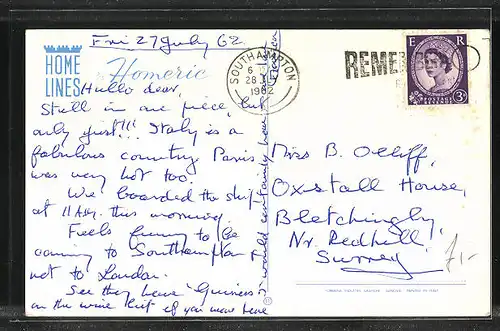 Fri 27 July 62.
HOME
LINES
Homeric
Hullo dear,
Still in one piece, but
only just!!! Italy is a
fabulous country Paris
was very hot too.
We boarded the ship
at 11 AM. this morning.
Feels funny to be
coming to Southampton &
not to London.
See they have Guiness
on the wine list if you were here
would
SOUTHAMPTON
28 JLY
1962
REME
E R
POSTAGE
3D
Miss B. Olliff,
Oxstall House,
Bletchingly,
Nr. Redhill,
Surrey.
7/-